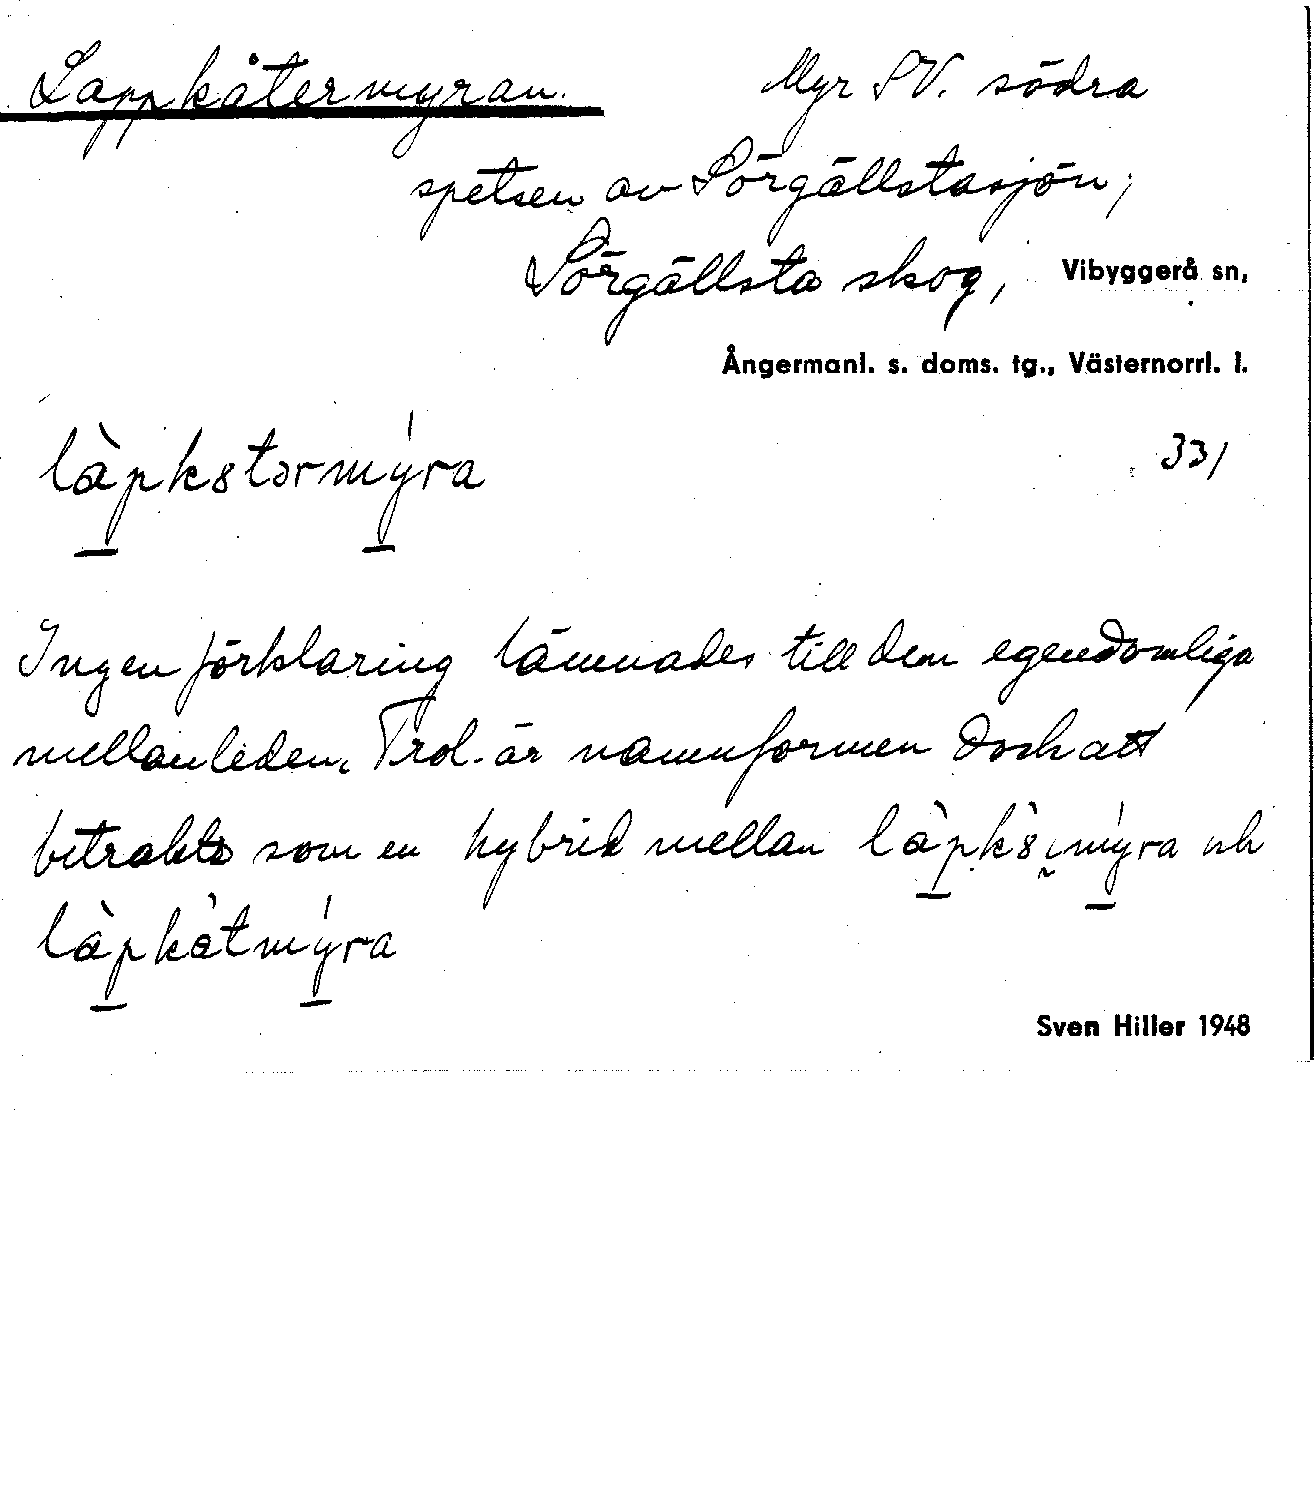 Lappkåtermyran. Myr SV. södra
spetsen av Sörgällstasjön,
Sörgällsta skog, Vibyggerå sn,
Ångermanl. s. doms. tg., Västernorrl. l.
làpk8tərmýra 331
Ingen förklaring lämnades till den egendomliga
mellanleden. Trol. är namnformen dock att
betrakta som en hybrid mellan làpk8̀mýra och
làpkåtmýra
Sven Hiller 1948